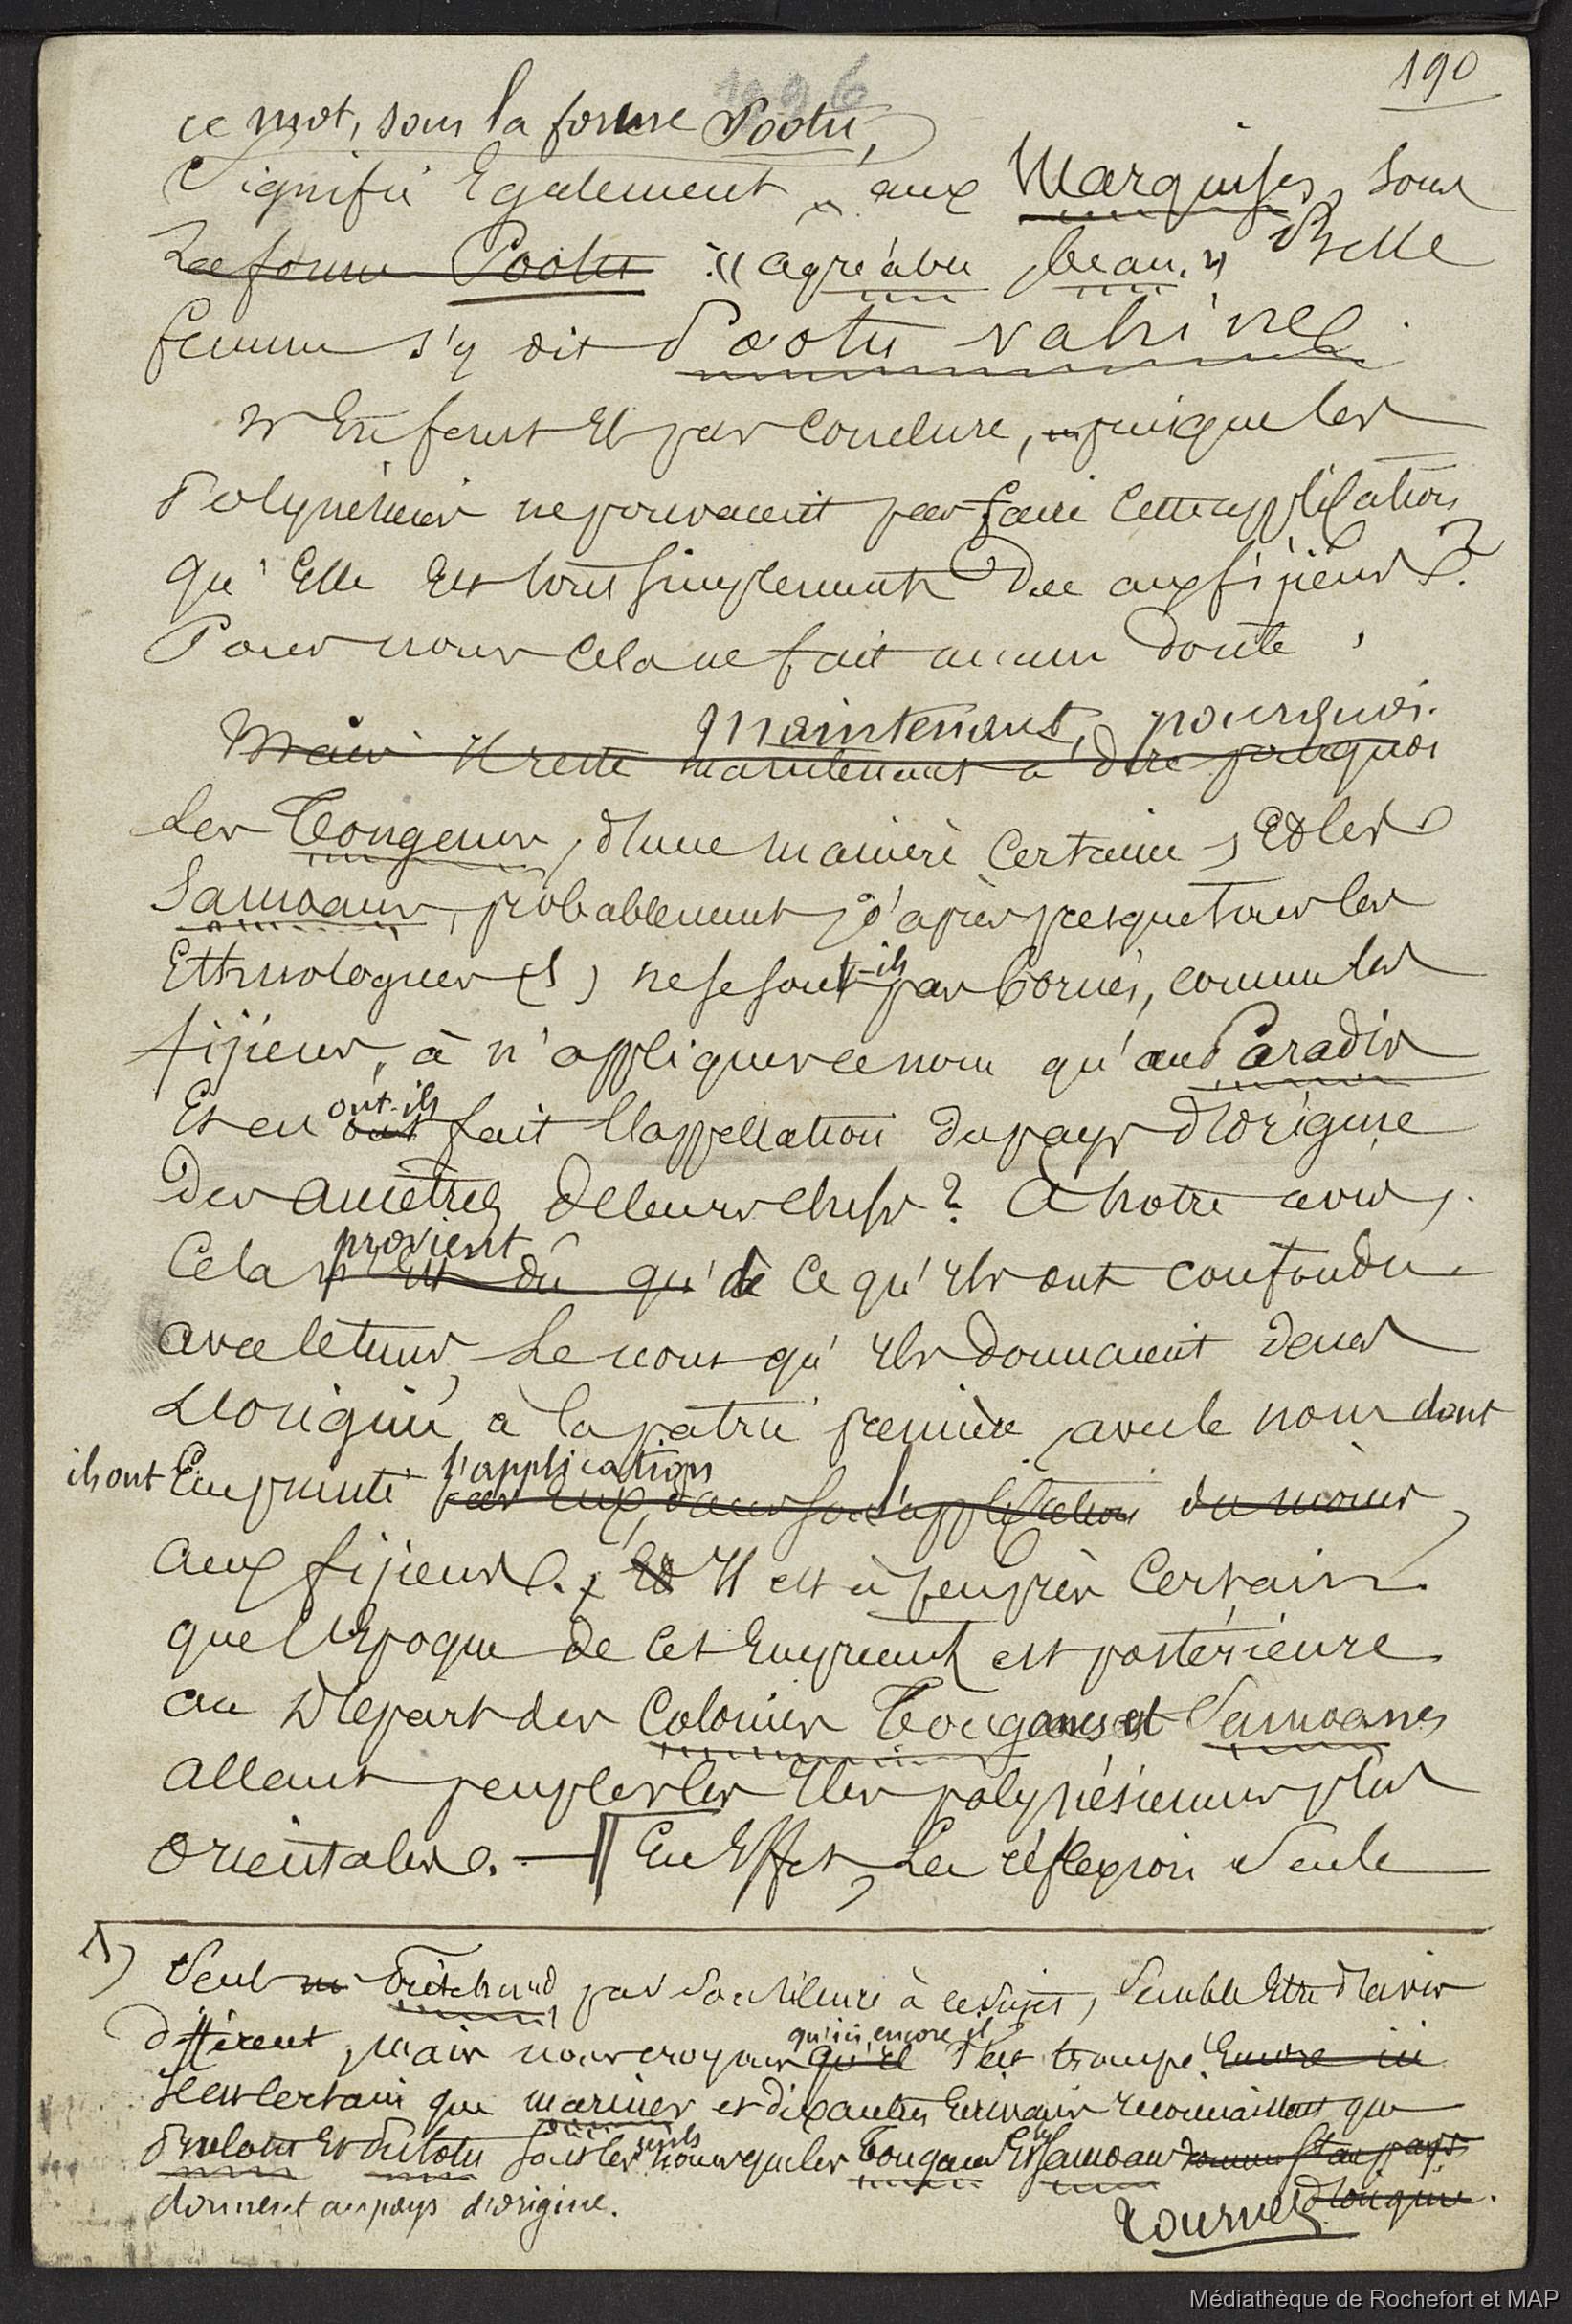 190
1996
ce mot, sous la forme Pootu,
Signifie Egalement, aux Marquises, sous
La forme Pootu :« agréable, beau. » Belle
femme s'y dit Pootu vahine.
N'En faut il pas Conclure, puisque les
Polynésiens ne pouvaient pas faire cette application
qu'Elle Est tout simplement Due aux fijiens?
Pour nous Cela ne fait aucun doute.
Maintenant, pourquoi
Mais il reste maintenant à dire pourquoi
Les Tongans, d'une manière Certaine, Et les
Samoans, probablement, d'après presque tous les
Ethnologues (1) ne se sont-ils pas bornés, comme les
fijiens, à n'appliquer ce nom qu'au Paradis
ont-ils
Et en ont fait l'appellation du pays d'origine
Des ancêtres de leurs chefs? à notre avis,
provient
Cela n'Est dû qu'de ce qu'ils ont confondu
avec le tems, Le nom qu'ils donnaient dans
L'origine à la patrie première, avec le nom dont
ils ont Emprunté l'application
par eux, dans son application du moins,
aux fijiens. Et Il est à peu près Certain
que l'Epoque de cet Emprunt est postérieure
au Départ des Colonies Tonganes et Samoanes
allant peupler les Iles polynésiennes plus
orientales. — En Effet, La réflexion Seule
1) Seul m Pritchard, par son silence à ce sujet, Semble Etre d'avis
qu'ici encore il
différent, mais nous croyons qu'il s'est trompé Encore ici
Il est certain que mariner et dix autres Ecrivains reconnaissent que
seuls
Bulotu et Pulotu sont les noms que les Tongans Et les Samoans donnent au pays
d'origine.
donnent au pays d'origine.
tournez
Médiathèque de Rochefort et MAP